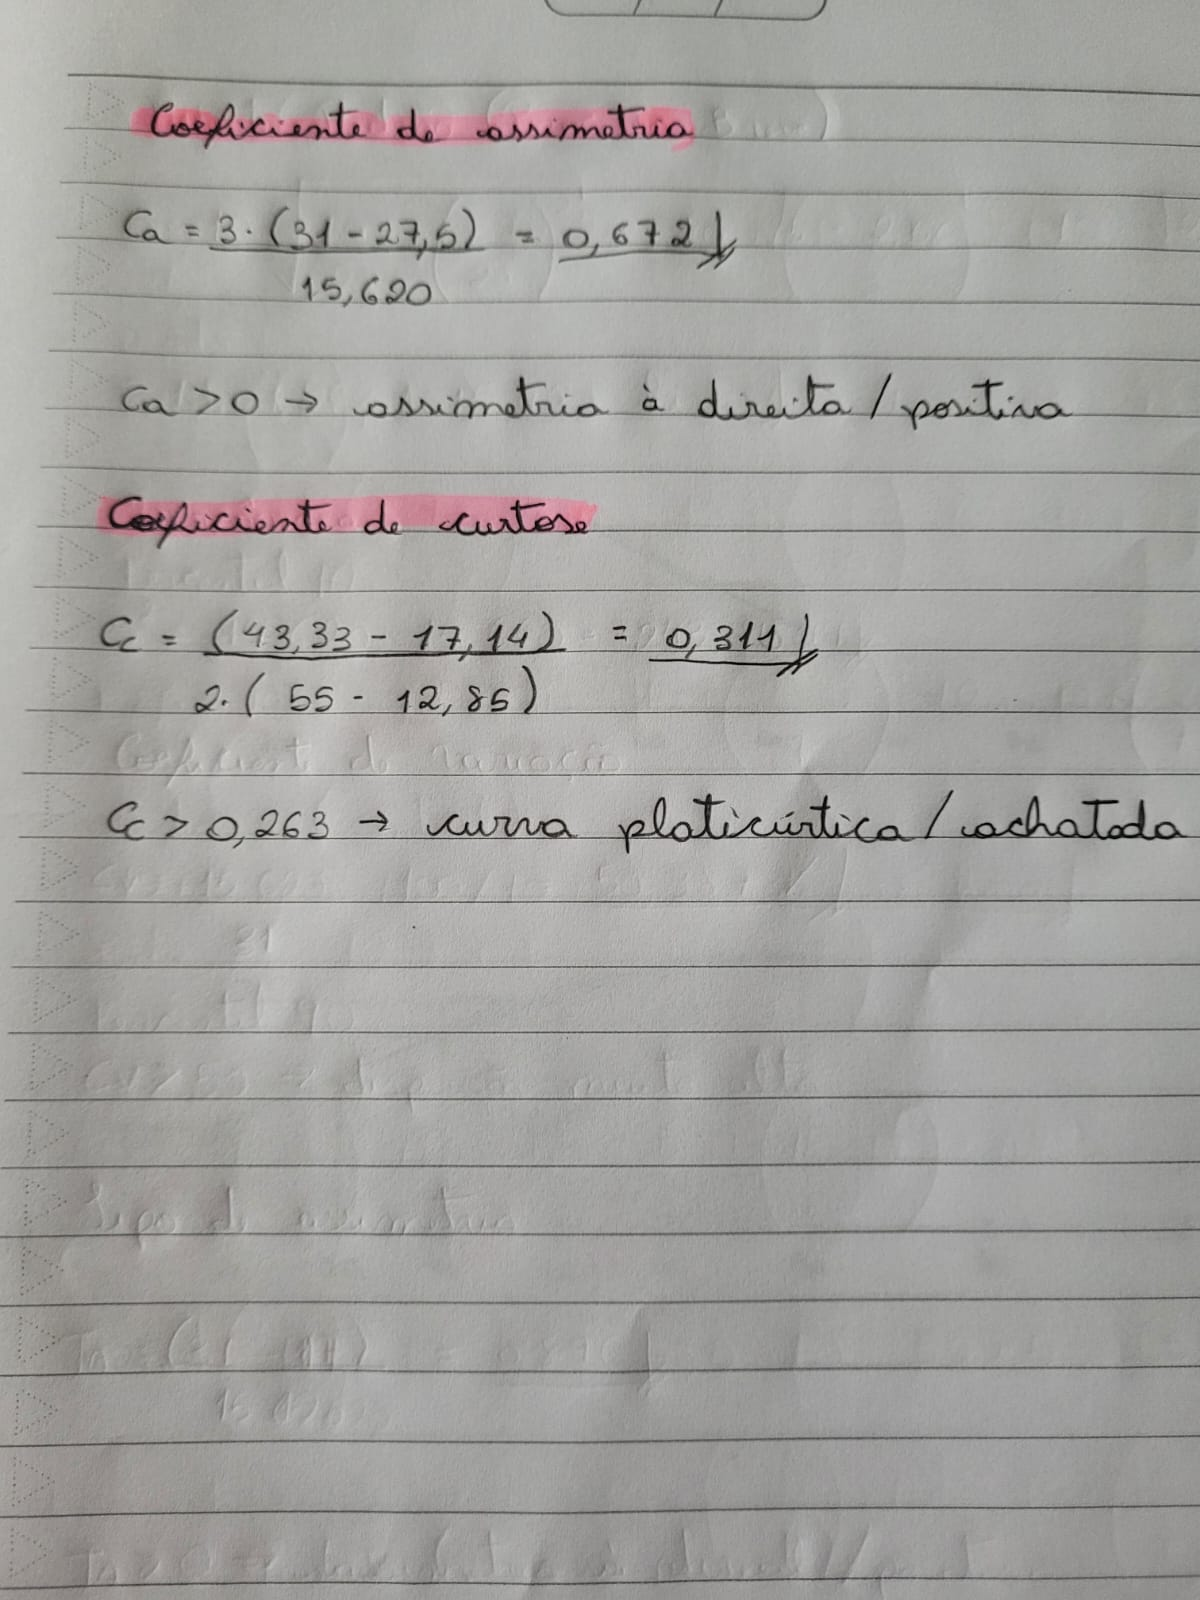 Coeficiente de assimetria
Ca = 3 · (31 - 27,5) = 0,672
15,620
Ca > 0 → assimetria à direita / positiva
Coeficiente de curtose
Cc = (43,33 - 17,14) = 0,311
2 · ( 55 - 12,85)
Cc > 0,263 → curva platicúrtica / achatada